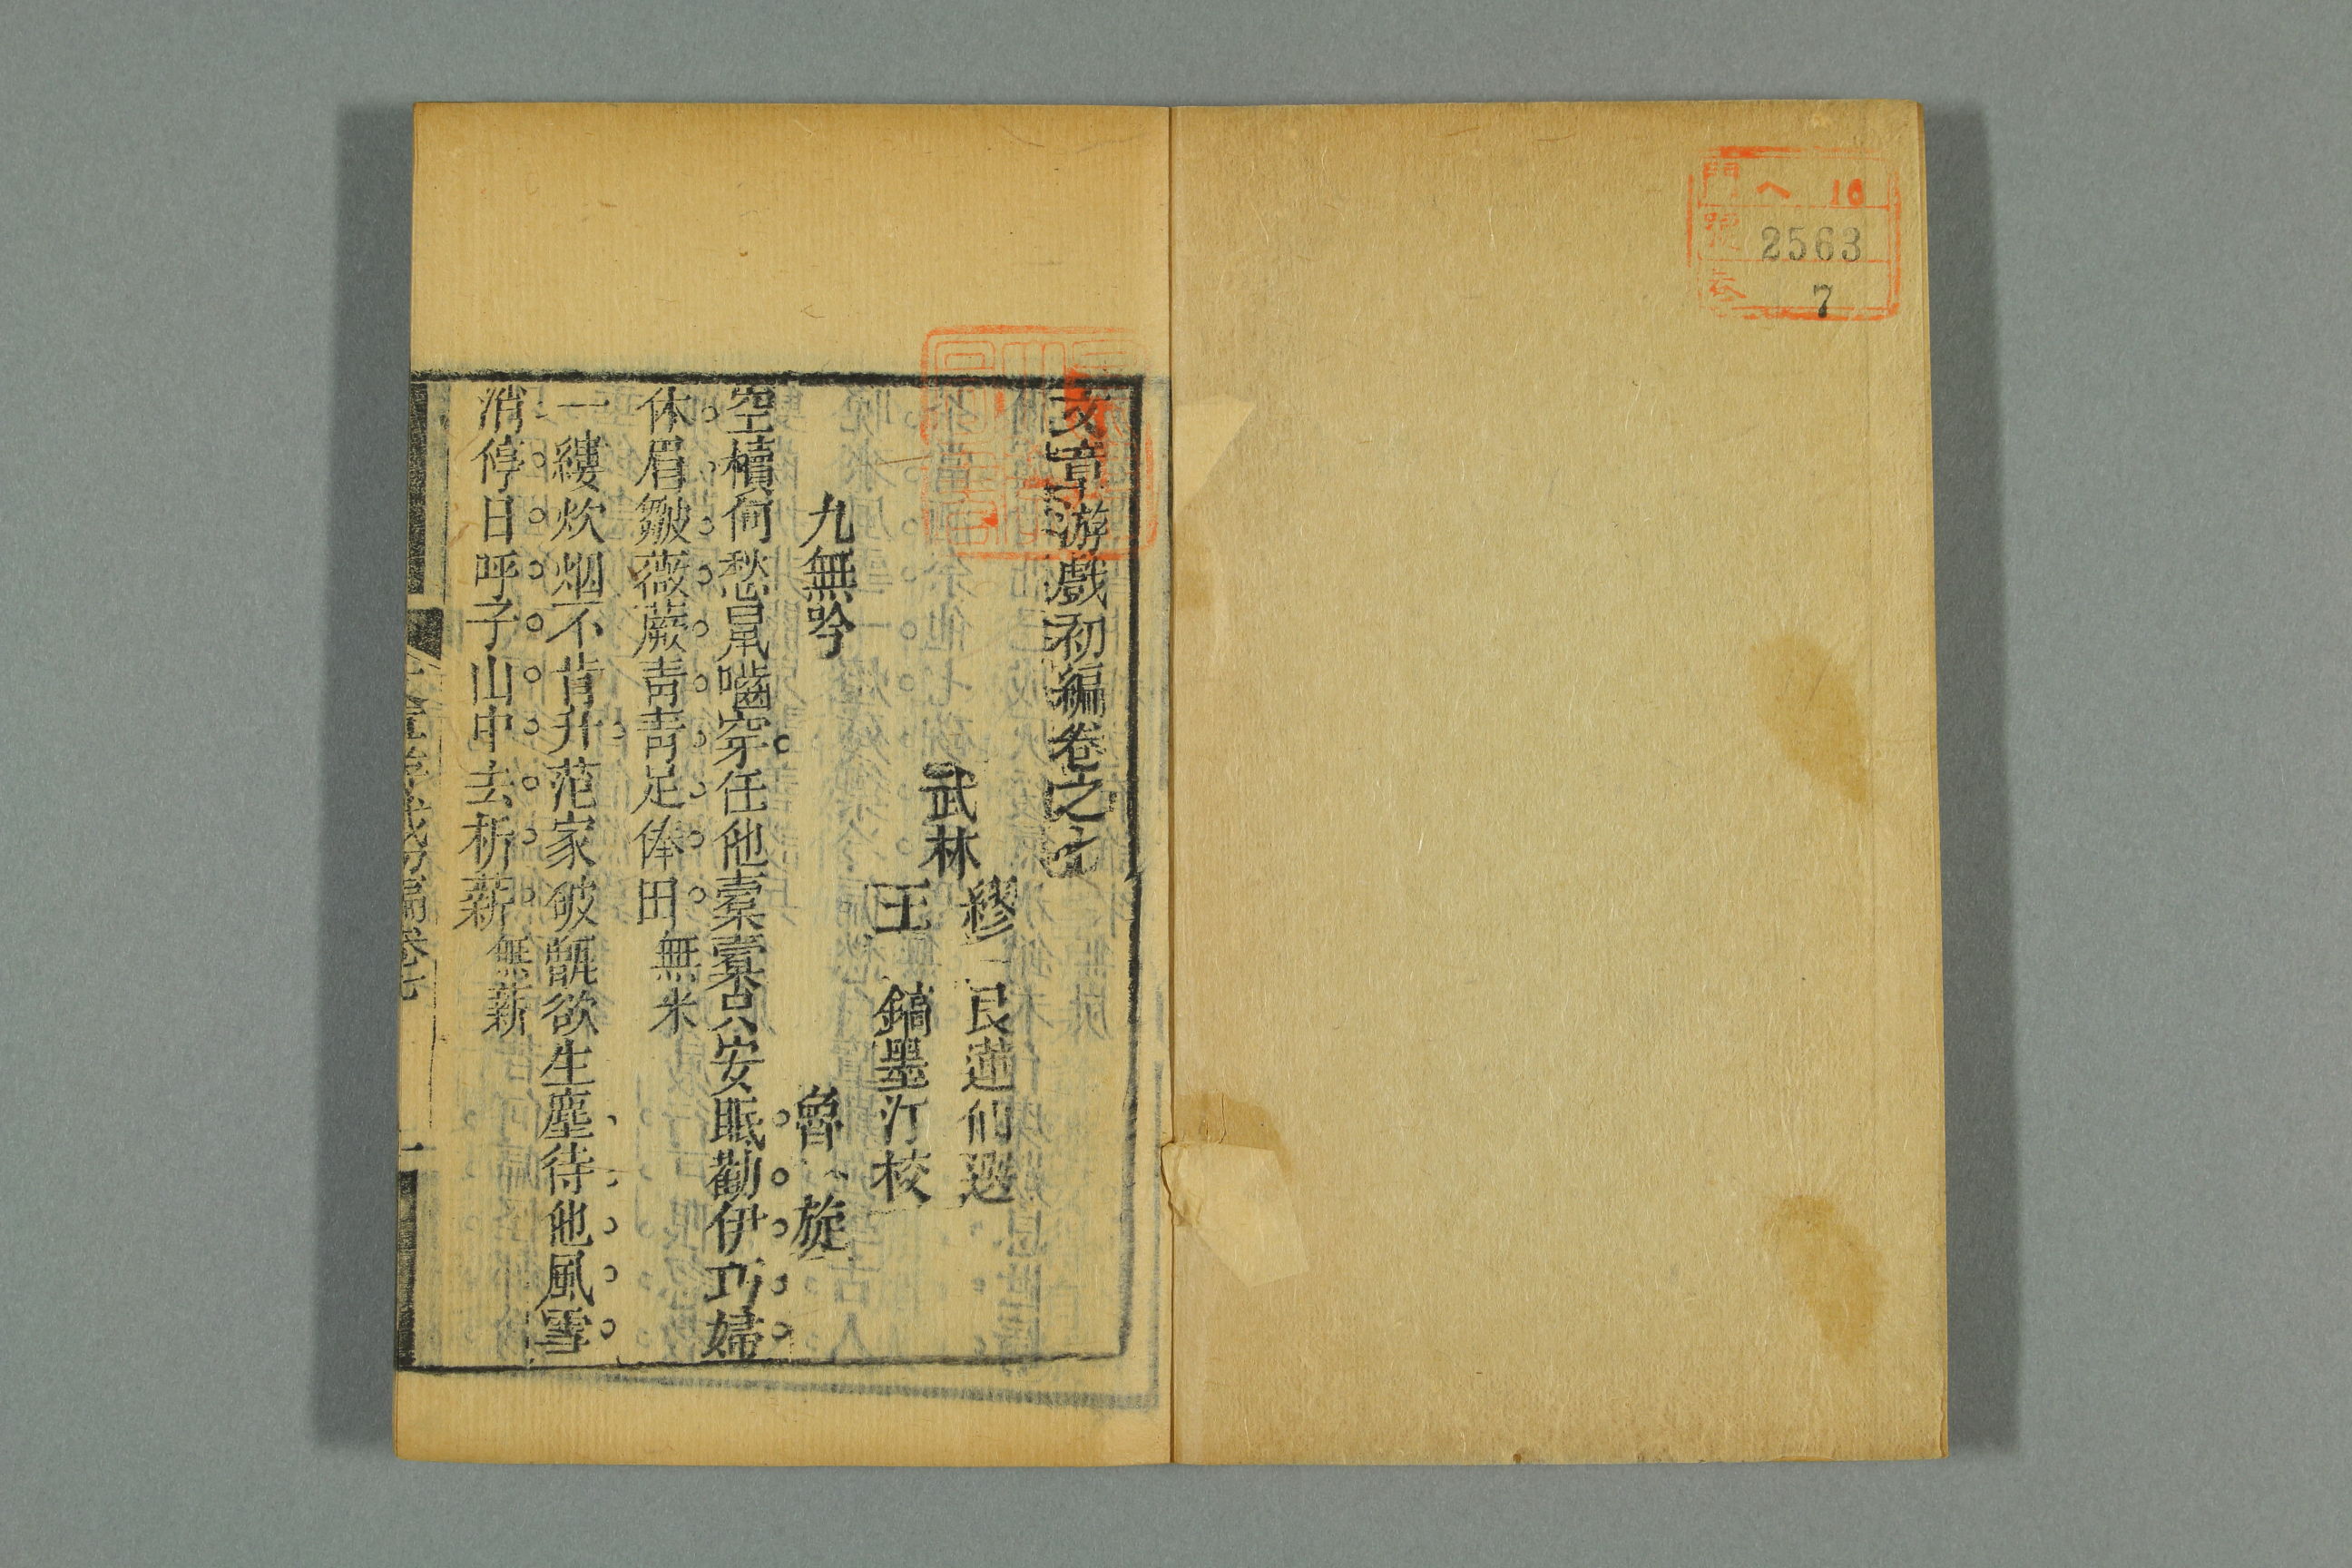 門 ヘ 10
號 2563
卷 7
文章游戲初編卷之七
武林
繆 艮蓮仙選
王 鎬墨汀校
九無吟
魯 旋
空樻何愁鼠嚙穿任他橐橐只安眠勸伊巧婦
休眉皺薇蕨靑靑足俸田 無米
一縷炊烟不肯升范家破甑欲生塵待他風雪
消停日呼子山中去析薪 無薪
文章游戲初編 卷七 一